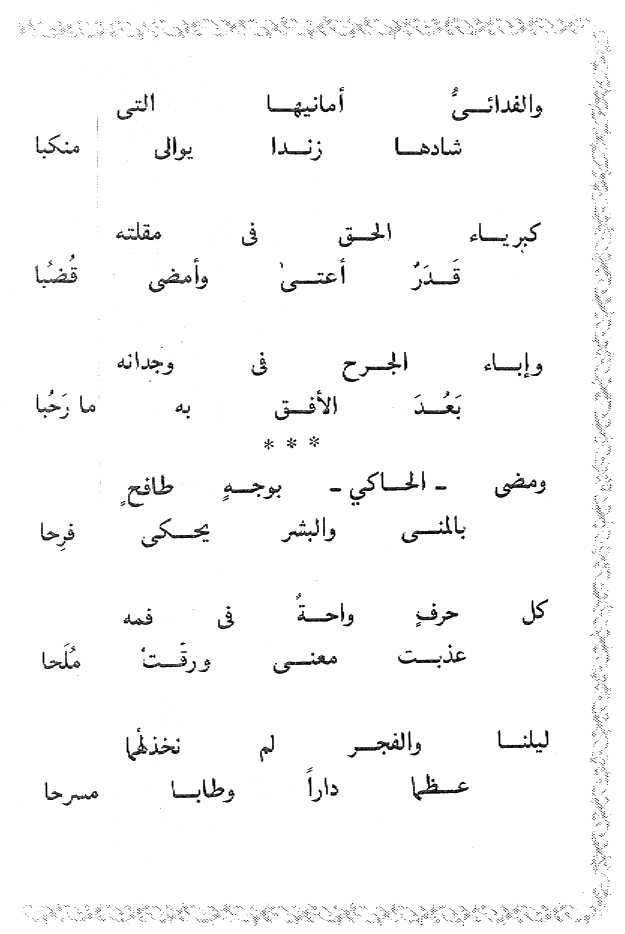 والفدائىُّ أمانيها التى
شادها زندا يوالى منكبا
كبرياء الحق فى مقلته
قَدَرٌ أعتىٰ وأمضى قُضبُا
وإباء الجرح فى وجدانه
بَعُدَ الأفق به ما رَحُبا
* * *
ومضى ـ الحاكي ـ بوجهٍ طافحٍ
بالمنى والبشر يحكى فرِحا
كل حرفٍ واحةٌ فى فمه
عذبت معنى ورقَتْ مُلَحا
ليلنا والفجر لم نخذلْهُما
عظما داراً وطابا مسرحا